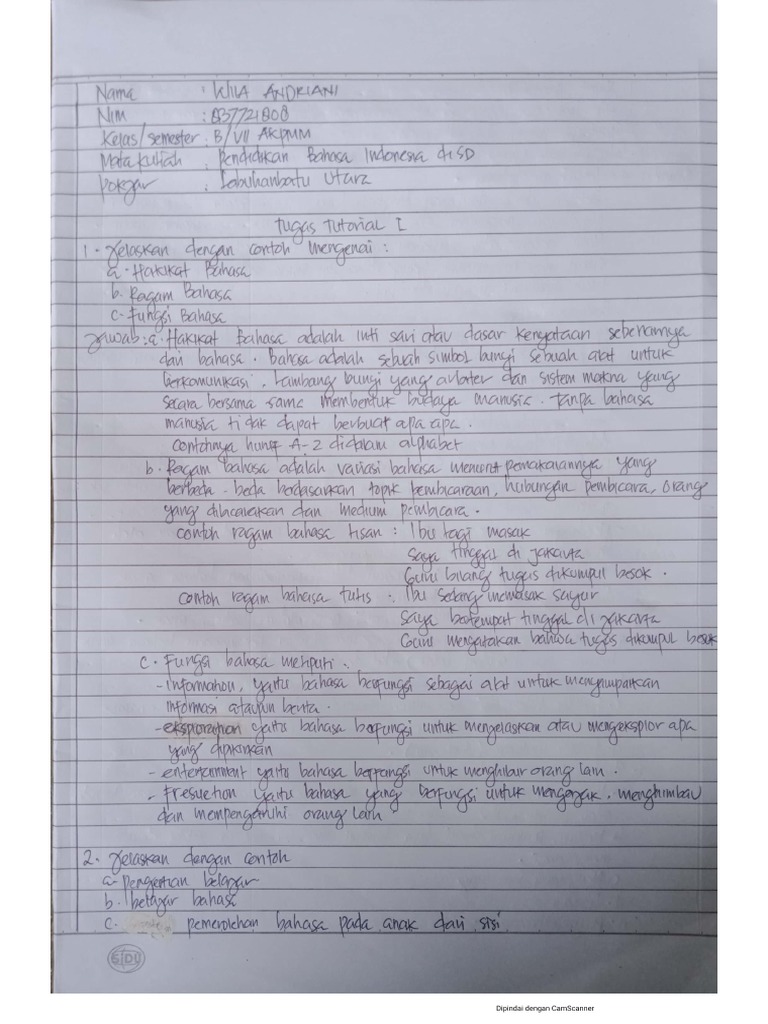 Nama : WILA ANDRIANI
Nim : 837721808
Kelas/semester : B/VII AKPMM
Mata kuliah : Pendidikan Bahasa Indonesia di SD
Pokjar : Labuhanbatu Utara
Tugas Tutorial I
1. Jelaskan dengan contoh mengenai :
a. Hakikat Bahasa
b. Ragam Bahasa
c. Fungsi Bahasa
Jawab : a. Hakikat Bahasa adalah inti sari atau dasar kenyataan sebenarnya
dari bahasa. Bahasa adalah sebuah simbol bunyi sebuah alat untuk
berkomunikasi, Lambang bunyi yang arbater dan sistem makna yang
secara bersama sama membentuk budaya manusia. Tanpa bahasa
manusia tidak dapat berbuat apa apa.
contohnya huruf A-Z didalam alphabet
b. Ragam bahasa adalah variasi bahasa menurut pemakaiannya yang
berbeda-beda berdasarkan topik pembicaraan, hubungan pembicara, orang
yang dibicarakan dan medium pembicara.
contoh ragam bahasa lisan : Ibu lagi masak
Saya tinggal di jakarta
Guru bilang tugas dikumpul besok.
contoh ragam bahasa tulis : Ibu sedang memasak sayur
Saya bertempat tinggal di jakarta
Guru mengatakan bahwa tugas dikumpul besok
c. Fungsi bahasa meliputi :
- Information, yaitu bahasa berfungsi sebagai alat untuk
informasi ataupun berita.
- eksploration yaitu bahasa berfungsi untuk menjelaskan atau mengeksplor apa
yang dipikirkan
- entertainment yaitu bahasa berfungsi untuk menghibur orang lain.
- yaitu bahasa yang berfungsi untuk mengajak, menghimbau
dan mempengaruhi orang lain
2. Jelaskan dengan contoh
a. Pengertian belajar
b. belajar bahasa
c. pemerolehan bahasa pada anak dari sisi
SIDU
Dipindai dengan CamScanner